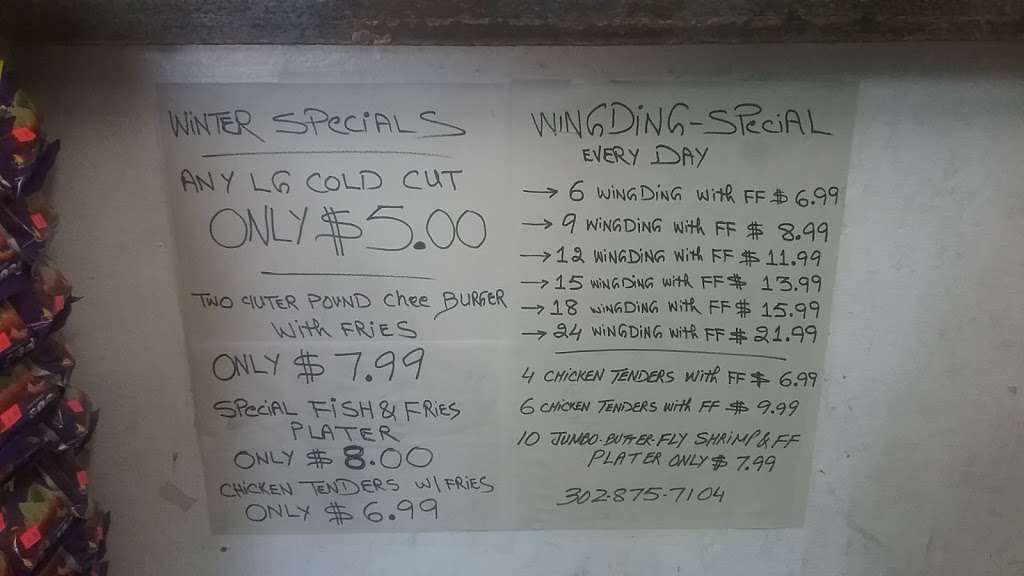 WINTER SPECIALS
ANY LG COLD CUT
ONLY $5.00
TWO QUTER POUND Chee BURGER
With FRIES
ONLY $ 7.99
SPECIAL FISH & FRIES
PLATER
ONLY $ 8.00
CHICKEN TENDERS W/ FRIES
ONLY $ 6.99
WINGDING-SPECIAL
EVERY DAY
→ 6 WINGDING With FF $ 6.99
→ 9 WINGDING With FF $ 8.99
→ 12 WINGDING With FF $ 11.99
→ 15 WINGDING With FF $ 13.99
→ 18 WINGDING With FF $ 15.99
→ 24 WINGDING With FF $ 21.99
4 CHICKEN TENDERS With FF $ 6.99
6 CHICKEN TENDERS With FF $ 9.99
10 JUMBO-BUTTER-FLY SHRIMP & FF
PLATER ONLY $ 7.99
302-875-7104